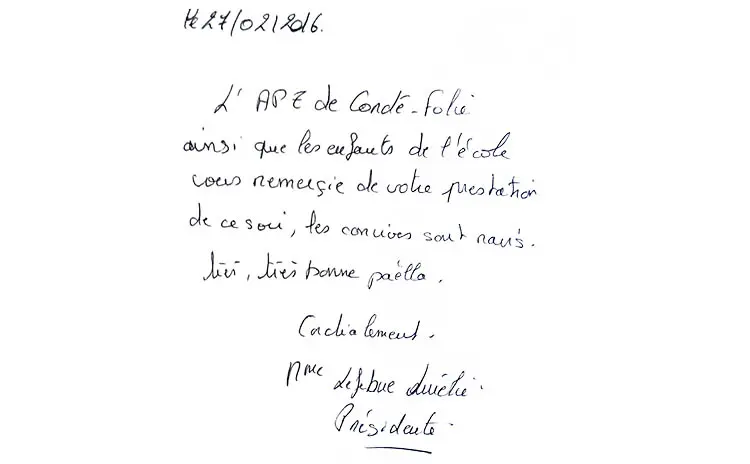 le 27/02/2016.
L' APE de Condé-Folie
ainsi que les enfants de l'école
vous remerçie de votre prestation
de ce soir, les convives sont ravis.
très, très bonne paëlla.
Cordialement.
Mme Lefebvre
Présidente.